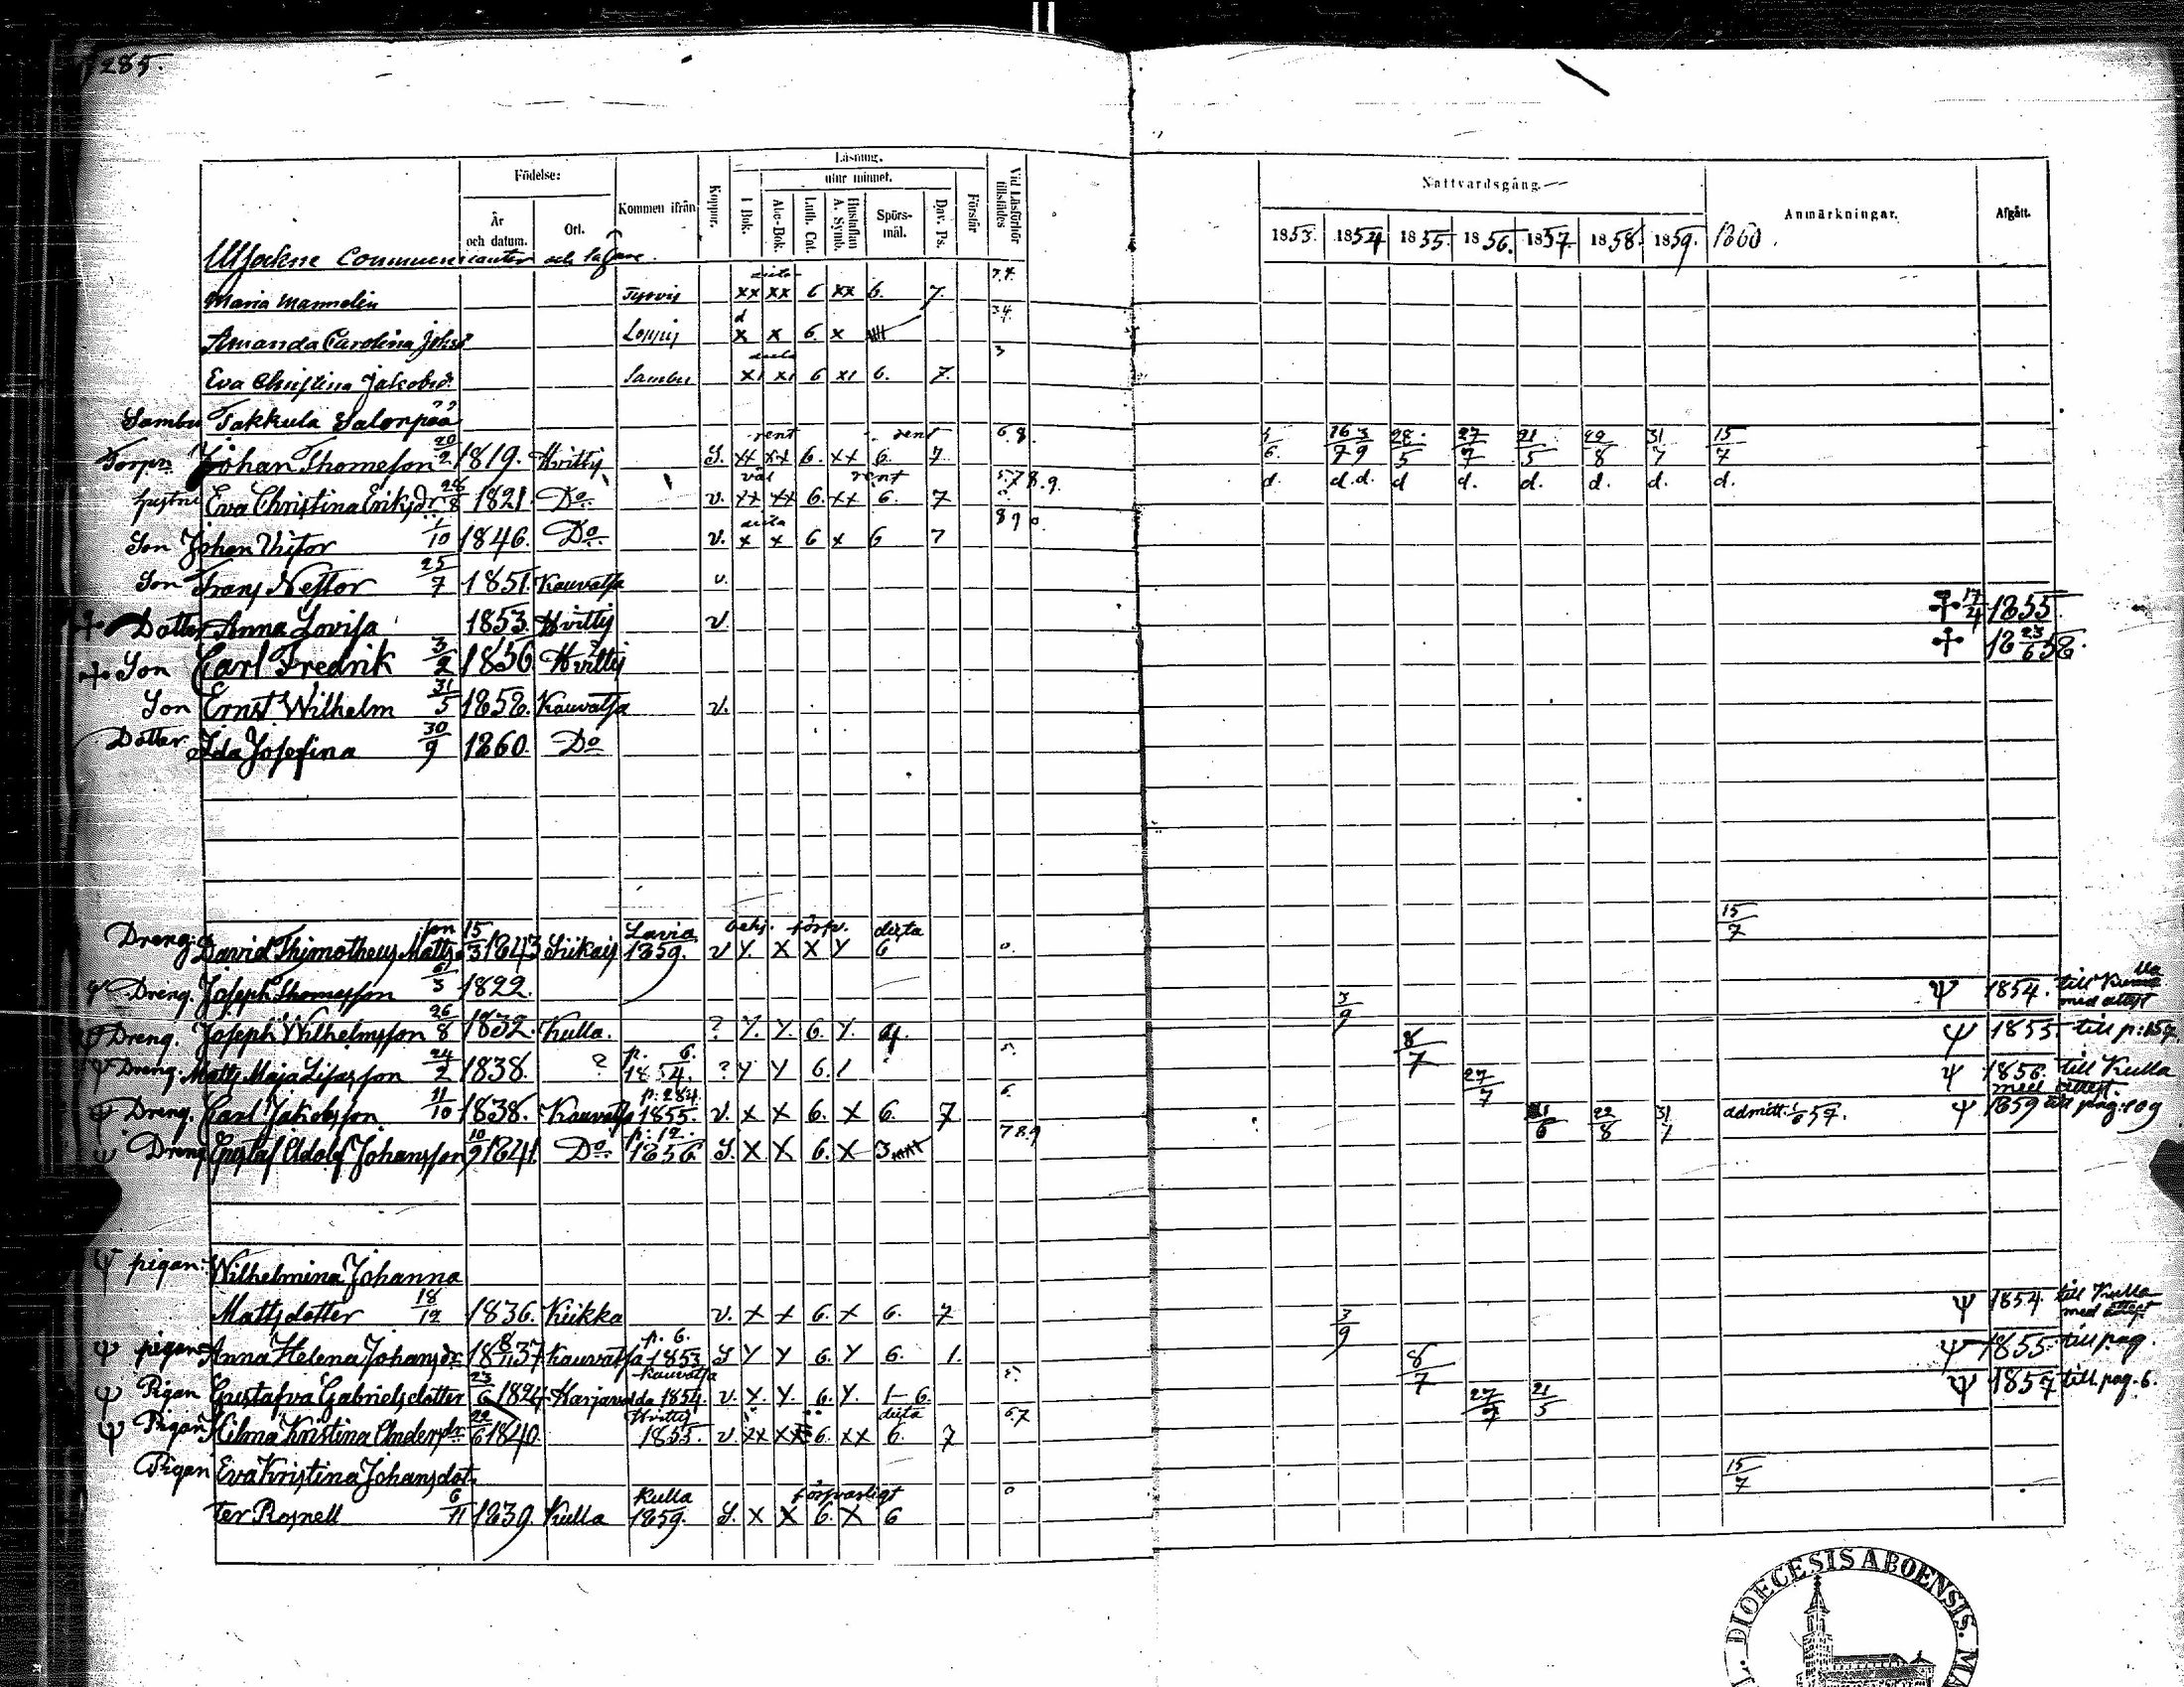 285.
Födelse: Läsning. Nattvardsgång.
utur minnet.
År och datum. Ort. Kommen ifrån Koppor. I Bok. Abc-Bok. Luth. Cat. Hustaflan A. Symb. Spörsmål. Dav. Ps. Förstår Vid Läsförhör tillstädes 1853. 1854 1855. 1856. 1857 1858. 1859. 1860. Anmärkningar. Afgått.
communicanter och
Maria Mannelin Tyrvis xx xx 6 xx 6. 7.
Amanda Carolina Johsd x x 6. x
Eva Christina Jakobsd. Sambu x1 x1 6 x1 6. 7.
Sambu Takkula Salonpää
rent rent 6 8.
Torpr. Johan Thomesson 20/2 1819. Hvittis S. xx xx 6. xx 6. 7. 28/5 27/7 21/5 22/8 31/7 15/7
väl rent 5 7 8. 9.
hustru Eva Christina Eriksdr 28/8 1821. Do v. xx xx 6. xx 6. 7 d. d.d. d d. d. d. d. d.
8 9 0.
Son Johan Victor 1/10 1846. Do v. x x 6 x 6 7
Son Frans Nestor 25/7 1851. Kauvatsa v.
Dotter Anna Lovisa 1853. Hvittis v. 17/4 1855.
Son Carl Fredrik 3/2 1856 Hvittis 23/6 1858.
Son Ernst Wilhelm 31/5 1858. Kauvatsa v.
Dotter Ida Josefina 30/9 1860. Do
Dreng. David Thimotheus Mattsson 15/3 1843 Siikais Lavia 1859. v Y. X X Y 6 0. 15/7
Dreng. Joseph Thomesson 6/3 1822. 3/9 Ψ 1854. till Kulla med attest
Ψ Dreng. Joseph Wilhelmsson 26/8 1832. Kulla. ? Y. Y. 6. Y. 8/7 Ψ 1855. till p: 159.
Ψ Dreng. Matts Maja Lisasson 24/2 1838. ? p. 6. 1854. ? Y Y 6. 1 5. 27/7 Ψ 1856. till Kulla med attest.
Ψ Dreng. Carl Jakobsson 11/10 1838. Kauvatsa p: 284. 1855. v. X X 6. X 6. 7 6. 22/8 31/7 admitt. 1/6 57. Ψ 1859 till pag: 109
Ψ Dreng Gustaf Adolf Johansson 10/9 1841. Do p: 12. 1856. S. X X 6. X 3 7 8.9
Ψ pigan: Wilhelmina Johanna
Mattsdotter 18/12 1836. Kiikka v. X X 6. X 6. 7 3/9 Ψ 1854. till Kulla med attest
Ψ pigan Anna Helena Johansdr 8/11 1837 Kauvatsa p. 6. 1853 S Y Y 6. Y 6. 1. 8/7 Ψ 1855. till pag.
Ψ Pigan Gustafva Gabrielsdotter 23/6 1824 Harjavalda Kauvatsa 1854. v. X. Y. 6. Y. 1-6. 5. 27/7 21/5 Ψ 1857 till pag. 6.
Ψ Pigan Hilma Kristina Andersdr 22/6 1840 Hvittis 1855. v. XX XX 6. XX 6. 7 6.7
Pigan Eva Kristina Johansdot-
ter Rosnell 6/11 1839. Kulla Kulla 1859. försvarligt S. X X 6. X 6 0 15/7
DIOECESIS ABOENSIS.